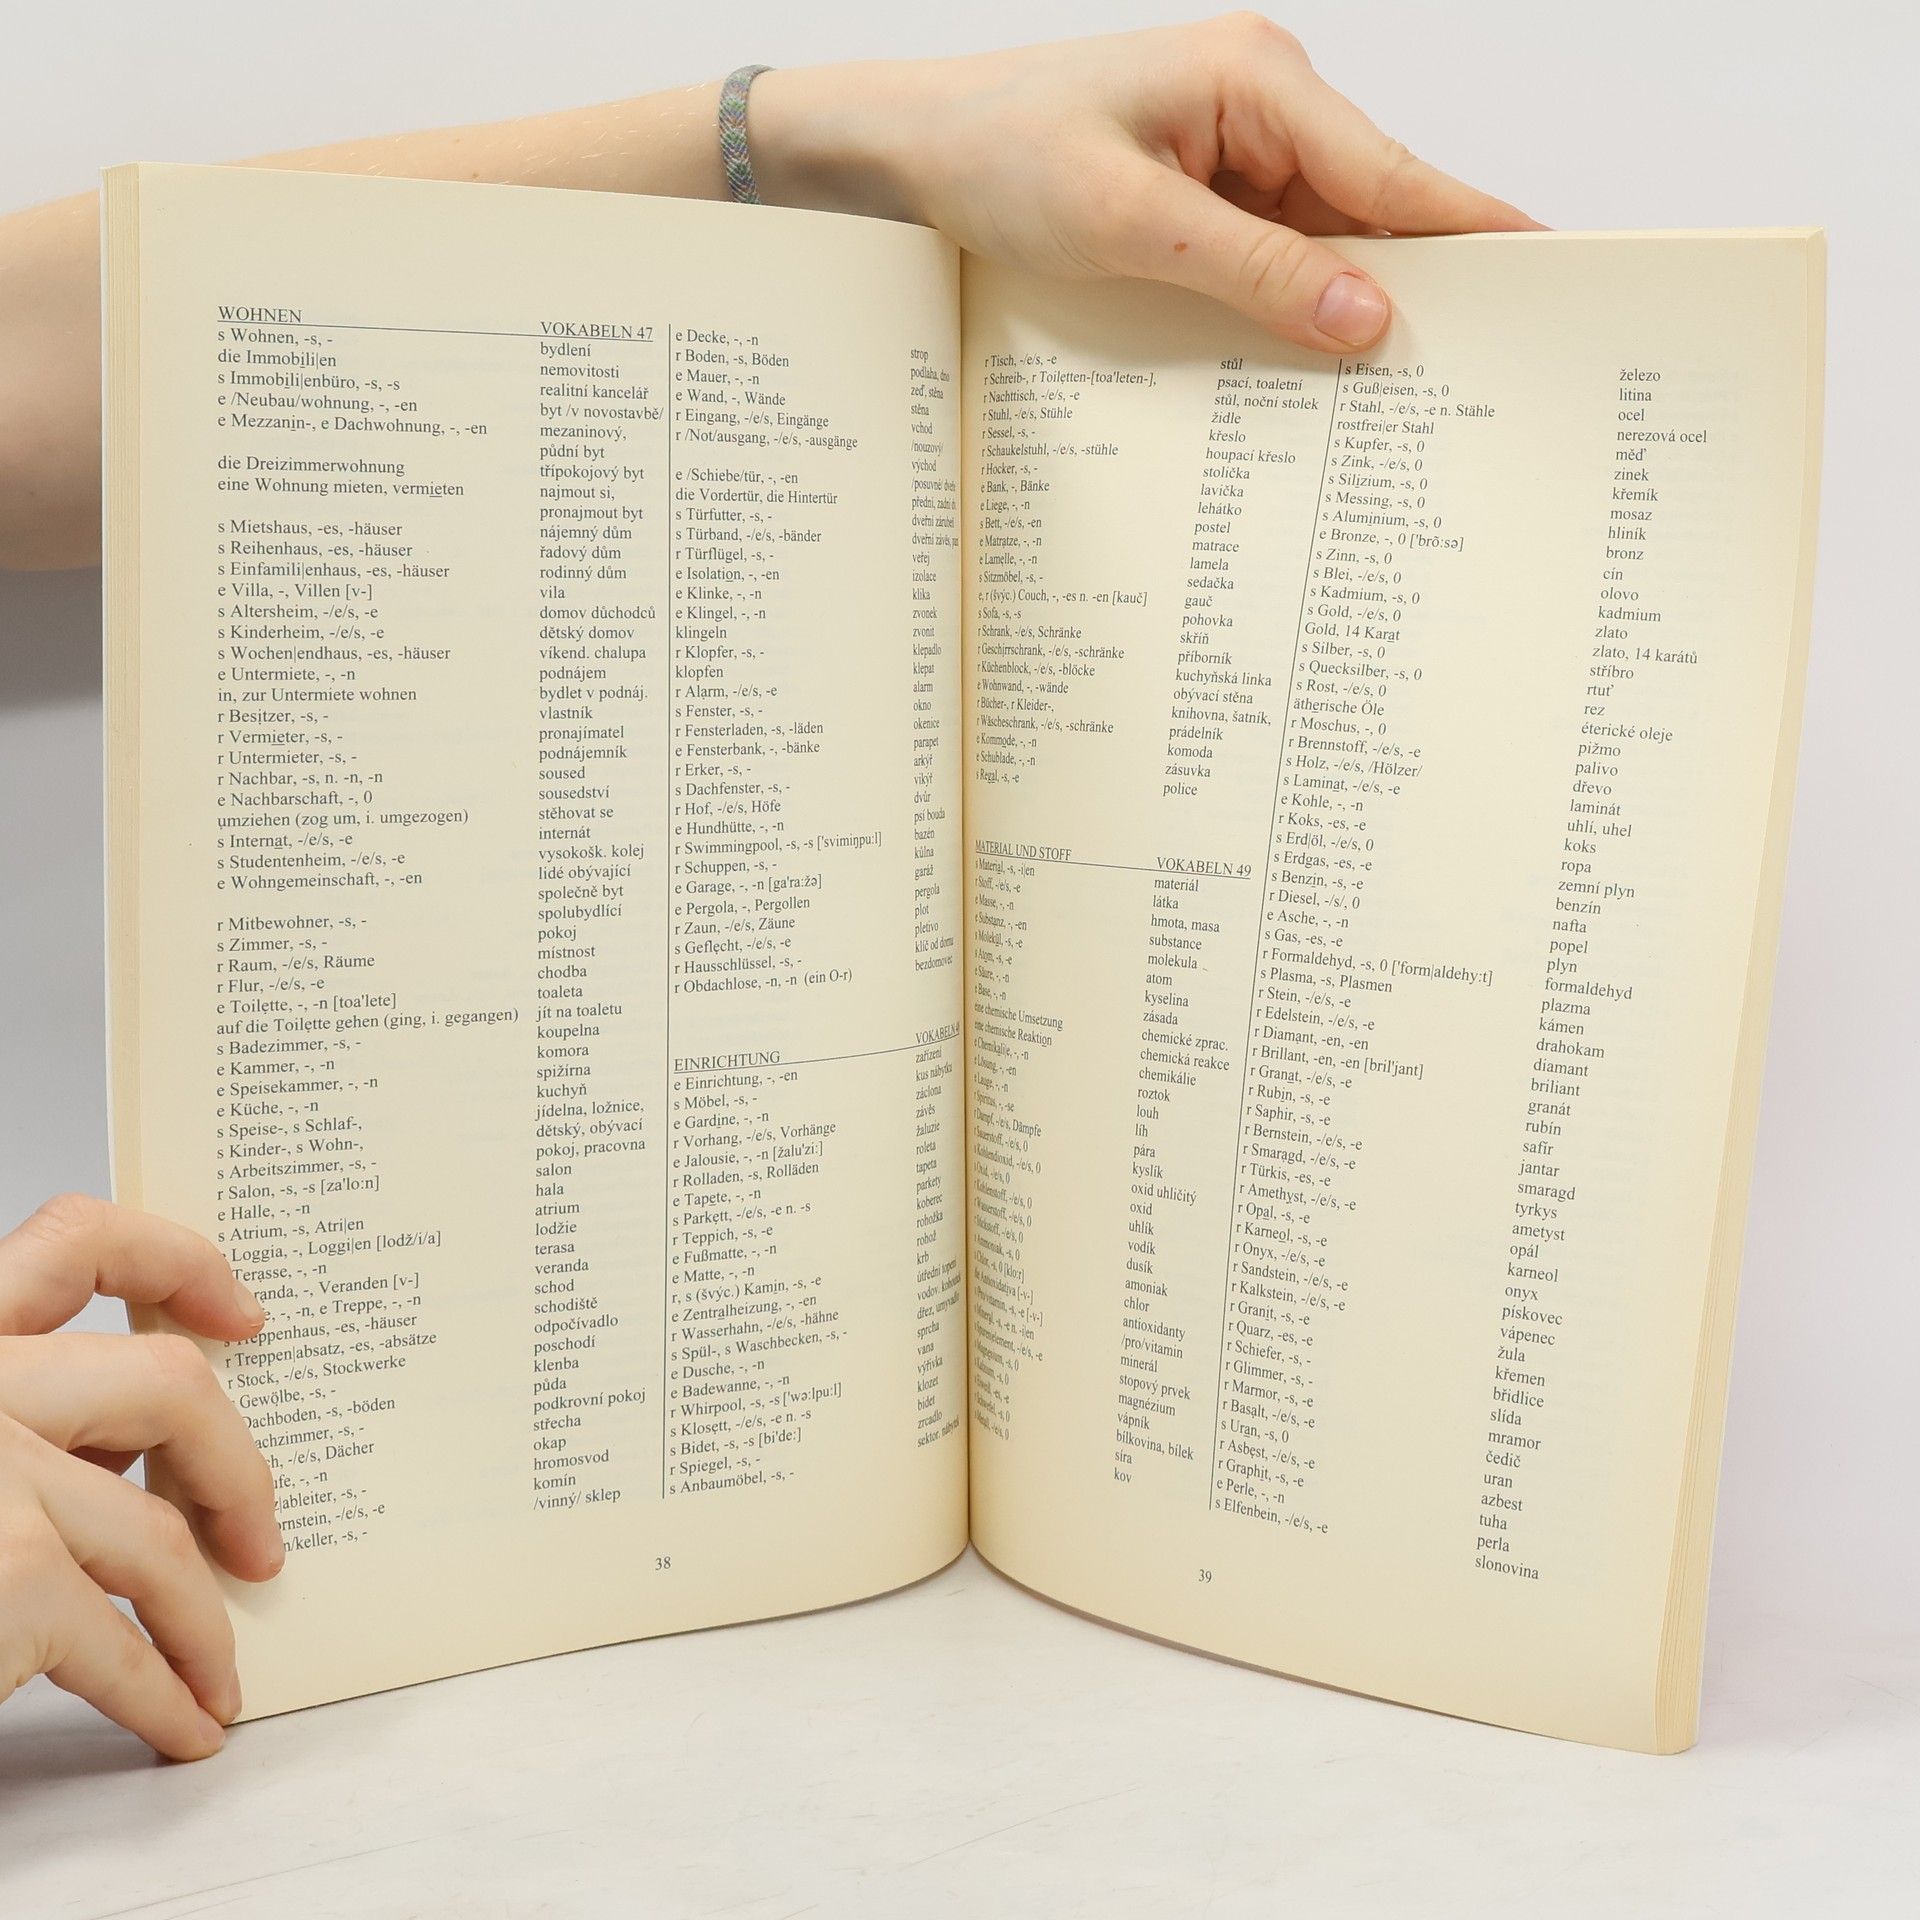 WOHNEN VOKABELN 47
s Wohnen, -s, - bydlení
die Immobili|en nemovitosti
s Immobili|enbüro, -s, -s realitní kancelář
e /Neubau/wohnung, -, -en byt /v novostavbě/
e Mezzanin-, e Dachwohnung, -, -en mezaninový,
půdní byt
die Dreizimmerwohnung třípokojový byt
eine Wohnung mieten, vermieten najmout si,
pronajmout byt
s Mietshaus, -es, -häuser nájemný dům
s Reihenhaus, -es, -häuser řadový dům
s Einfamili|enhaus, -es, -häuser rodinný dům
e Villa, -, Villen [v-] vila
s Altersheim, -/e/s, -e domov důchodců
s Kinderheim, -/e/s, -e dětský domov
s Wochen|endhaus, -es, -häuser víkend. chalupa
e Untermiete, -, -n podnájem
in, zur Untermiete wohnen bydlet v podnáj.
r Besitzer, -s, - vlastník
r Vermieter, -s, - pronajímatel
r Untermieter, -s, - podnájemník
r Nachbar, -s, n. -n, -n soused
e Nachbarschaft, -, 0 sousedství
umziehen (zog um, i. umgezogen) stěhovat se
s Internat, -/e/s, -e internát
s Studentenheim, -/e/s, -e vysokošk. kolej
e Wohngemeinschaft, -, -en lidé obývající
společně byt
r Mitbewohner, -s, - spolubydlící
s Zimmer, -s, - pokoj
r Raum, -/e/s, Räume místnost
r Flur, -/e/s, -e chodba
e Toilette, -, -n [toa'lete] toaleta
auf die Toilette gehen (ging, i. gegangen) jít na toaletu
s Badezimmer, -s, - koupelna
e Kammer, -, -n komora
e Speisekammer, -, -n spižírna
e Küche, -, -n kuchyň
s Speise-, s Schlaf-, jídelna, ložnice,
s Kinder-, s Wohn-, dětský, obývací
s Arbeitszimmer, -s, - pokoj, pracovna
r Salon, -s, -s [za'lo:n] salon
e Halle, -, -n hala
s Atrium, -s, Atri|en atrium
Loggia, -, Loggi|en [lodž/i/a] lodžie
Terasse, -, -n terasa
randa, -, Veranden [v-] veranda
e, -, -n, e Treppe, -, -n schod
s Treppenhaus, -es, -häuser schodiště
r Treppen|absatz, -es, -absätze odpočívadlo
r Stock, -/e/s, Stockwerke poschodí
Gewölbe, -s, - klenba
Dachboden, -s, -böden půda
achzimmer, -s, - podkrovní pokoj
ch, -/e/s, Dächer střecha
ufe, -, -n okap
z|ableiter, -s, - hromosvod
ornstein, -/e/s, -e komín
n/keller, -s, - /vinný/ sklep
e Decke, -, -n strop
r Boden, -s, Böden podlaha, dno
e Mauer, -, -n zeď, stěna
e Wand, -, Wände stěna
r Eingang, -/e/s, Eingänge vchod
r /Not/ausgang, -/e/s, -ausgänge /nouzový/
východ
e /Schiebe/tür, -, -en /posuvné/ dveře
die Vordertür, die Hintertür přední, zadní
s Türfutter, -s, - dveřní zárubeň
s Türband, -/e/s, -bänder dveřní závěs,
r Türflügel, -s, - veřej
e Isolation, -, -en izolace
e Klinke, -, -n klika
e Klingel, -, -n zvonek
klingeln zvonit
r Klopfer, -s, - klepadlo
klopfen klepat
r Alarm, -/e/s, -e alarm
s Fenster, -s, - okno
r Fensterladen, -s, -läden okenice
e Fensterbank, -, -bänke parapet
r Erker, -s, - arkýř
s Dachfenster, -s, - vikýř
r Hof, -/e/s, Höfe dvůr
e Hundhütte, -, -n psí bouda
r Swimmingpool, -s, -s ['svimiŋpu:l] bazén
r Schuppen, -s, - kůlna
e Garage, -, -n [ga'ra:žə] garáž
e Pergola, -, Pergollen pergola
r Zaun, -/e/s, Zäune plot
s Geflecht, -/e/s, -e pletivo
r Hausschlüssel, -s, - klíč od domu
r Obdachlose, -n, -n (ein O-r) bezdomovec
EINRICHTUNG VOKABELN
e Einrichtung, -, -en zařízení
s Möbel, -s, - kus nábytku
e Gardine, -, -n záclona
r Vorhang, -/e/s, Vorhänge závěs
e Jalousie, -, -n [žalu'zi:] žaluzie
r Rolladen, -s, Rolläden roleta
e Tapete, -, -n tapeta
s Parkett, -/e/s, -e n. -s parkety
r Teppich, -s, -e koberec
e Fußmatte, -, -n rohožka
e Matte, -, -n rohož
r, s (švýc.) Kamin, -s, -e krb
e Zentralheizung, -, -en ústřední topení
r Wasserhahn, -/e/s, -hähne vodov. kohoutek
s Spül-, s Waschbecken, -s, - dřez, umyvadlo
e Dusche, -, -n sprcha
e Badewanne, -, -n vana
r Whirpool, -s, -s ['wə:lpu:l] výřivka
s Klosett, -/e/s, -e n. -s klozet
s Bidet, -s, -s [bi'de:] bidet
r Spiegel, -s, - zrcadlo
s Anbaumöbel, -s, - sektor. nábytek
38
r Tisch, -/e/s, -e stůl
r Schreib-, r Toiletten-[toa'leten-], psací, toaletní
r Nachttisch, -/e/s, -e stůl, noční stolek
r Stuhl, -/e/s, Stühle židle
r Sessel, -s, - křeslo
r Schaukelstuhl, -/e/s, -stühle houpací křeslo
r Hocker, -s, - stolička
e Bank, -, Bänke lavička
e Liege, -, -n lehátko
s Bett, -/e/s, -en postel
e Matratze, -, -n matrace
e Lamelle, -, -n lamela
s Sitzmöbel, -s, - sedačka
e, r (švýc.) Couch, -, -es n. -en [kauč] gauč
s Sofa, -s, -s pohovka
r Schrank, -/e/s, Schränke skříň
r Geschirrschrank, -/e/s, -schränke příborník
r Küchenblock, -/e/s, -blöcke kuchyňská linka
e Wohnwand, -, -wände obývací stěna
r Bücher-, r Kleider-, knihovna, šatník,
r Wäscheschrank, -/e/s, -schränke prádelník
e Kommode, -, -n komoda
e Schublade, -, -n zásuvka
s Regal, -s, -e police
MATERIAL UND STOFF VOKABELN 49
s Material, -s, -i|en materiál
r Stoff, -/e/s, -e látka
e Masse, -, -n hmota, masa
e Substanz, -, -en substance
s Molekül, -s, -e molekula
s Atom, -s, -e atom
e Säure, -, -n kyselina
e Base, -, -n zásada
eine chemische Umsetzung chemické zprac.
eine chemische Reaktion chemická reakce
e Chemikali|e, -, -n chemikálie
e Lösung, -, -en roztok
e Lauge, -, -n louh
r Spiritus, -, -se líh
r Dampf, -/e/s, Dämpfe pára
r Sauerstoff, -/e/s, 0 kyslík
s Kohlendioxid, -/e/s, 0 oxid uhličitý
s Oxid, -/e/s, 0 oxid
r Kohlenstoff, -/e/s, 0 uhlík
r Wasserstoff, -/e/s, 0 vodík
r Stickstoff, -/e/s, 0 dusík
s Ammoniak, -s, 0 amoniak
s Chlor, -s, 0 [klo:r] chlor
die Antioxidativa [-v-] antioxidanty
s /Pro/vitamin, -s, -e [-v-] /pro/vitamin
s Mineral, -s, -e n. -i|en minerál
s Spurenelement, -/e/s, -e stopový prvek
s Magnesium, -s, 0 magnézium
s Kalzium, -s, 0 vápník
s Eiweiß, -es, -e bílkovina, bílek
r Schwefel, -s, 0 síra
s Metall, -/e/s, kov
s Eisen, -s, 0 železo
s Guß|eisen, -s, 0 litina
r Stahl, -/e/s, -e n. Stähle ocel
rostfrei|er Stahl nerezová ocel
s Kupfer, -s, 0 měď
s Zink, -/e/s, 0 zinek
s Silizium, -s, 0 křemík
s Messing, -s, 0 mosaz
s Aluminium, -s, 0 hliník
e Bronze, -, 0 ['brõ:sə] bronz
s Zinn, -s, 0 cín
s Blei, -/e/s, 0 olovo
s Kadmium, -s, 0 kadmium
s Gold, -/e/s, 0 zlato
Gold, 14 Karat zlato, 14 karátů
s Silber, -s, 0 stříbro
s Quecksilber, -s, 0 rtuť
s Rost, -/e/s, 0 rez
ätherische Öle éterické oleje
r Moschus, -, 0 pižmo
r Brennstoff, -/e/s, -e palivo
s Holz, -/e/s, /Hölzer/ dřevo
s Laminat, -/e/s, -e laminát
e Kohle, -, -n uhlí, uhel
r Koks, -es, -e koks
s Erd|öl, -/e/s, 0 ropa
s Erdgas, -es, -e zemní plyn
s Benzin, -s, -e benzín
r Diesel, -/s/, 0 nafta
e Asche, -, -n popel
s Gas, -es, -e plyn
r Formaldehyd, -s, 0 ['form|aldehy:t] formaldehyd
s Plasma, -s, Plasmen plazma
r Stein, -/e/s, -e kámen
r Edelstein, -/e/s, -e drahokam
r Diamant, -en, -en diamant
r Brillant, -en, -en [bril'jant] briliant
r Granat, -/e/s, -e granát
r Rubin, -s, -e rubín
r Saphir, -s, -e safír
r Bernstein, -/e/s, -e jantar
r Smaragd, -/e/s, -e smaragd
r Türkis, -es, -e tyrkys
r Amethyst, -/e/s, -e ametyst
r Opal, -s, -e opál
r Karneol, -s, -e karneol
r Onyx, -/e/s, -e onyx
r Sandstein, -/e/s, -e pískovec
r Kalkstein, -/e/s, -e vápenec
r Granit, -s, -e žula
r Quarz, -es, -e křemen
r Schiefer, -s, - břidlice
r Glimmer, -s, - slída
r Marmor, -s, -e mramor
r Basalt, -/e/s, -e čedič
s Uran, -s, 0 uran
r Asbest, -/e/s, -e azbest
r Graphit, -s, -e tuha
e Perle, -, -n perla
s Elfenbein, -/e/s, -e slonovina
39